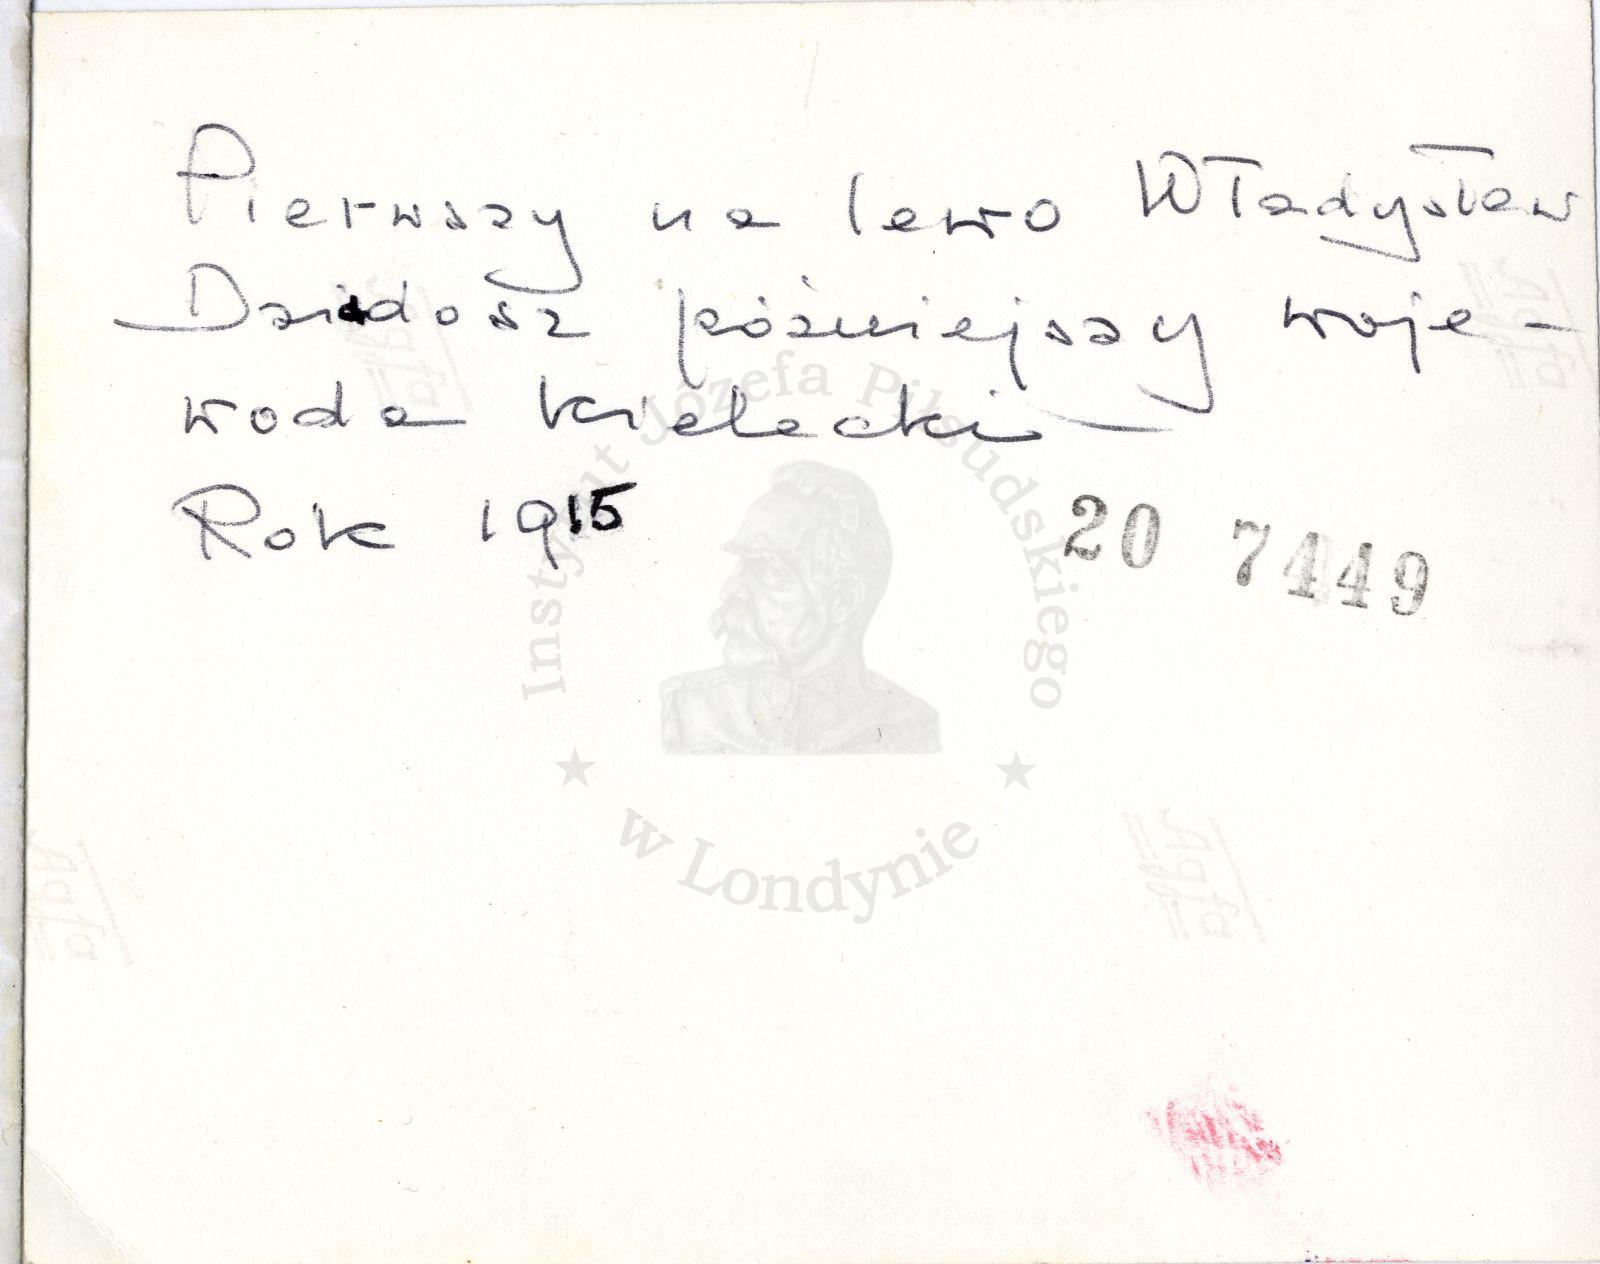 Pierwszy na lewo Władysław
Dziadosz późniejszy woje-
woda kielecki
Rok 1915
20 7449
Instytut Józefa Piłsudskiego
★ w Londynie ★
Agfa
Agfa
Agfa
Agfa